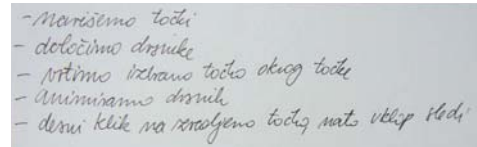 - narišemo točki
- določimo drsnike
- vrtimo izbrano točko okrog točke
- animiramo drsnik
- desni klik na zavrteno točko, nato vklop sledi